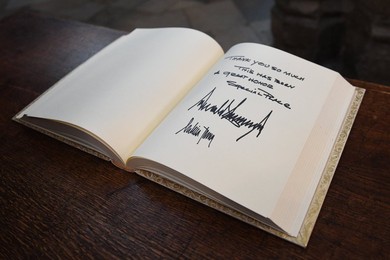 THANK YOU SO MUCH
THIS HAS BEEN
A GREAT HONOR
SPECIAL PLACE